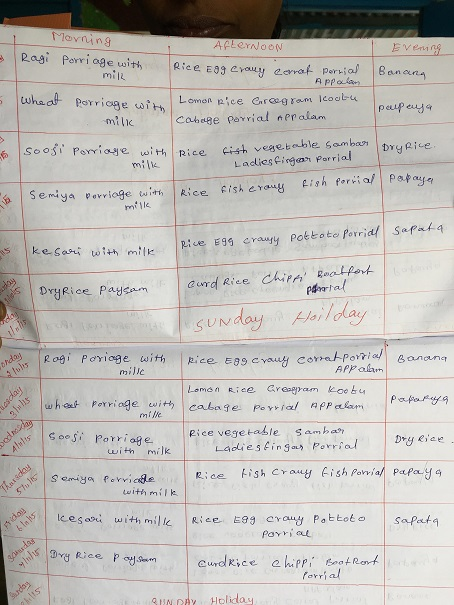 Morning
AFterNOON
Evening
Ragi Porriage with
milk
Rice Egg crauy corrat porrial
Appalam
Banana
Wheat Porriage with
milk
Lomon Rice Greegram kootu
Cabage Porrial Appalam
Papaya
Sooji Porriage with
milk
Rice fish vegetable Sambar
Ladiesfingar Porrial
DryRice
Semiya Porriage with
milk
Rice fish crauy fish Porrial
Papaya
kesari with milk
Rice Egg crauy Pottoto Porrial
Sapata
DryRice Paysam
Curd Rice Chippi Beatfort
Porrial
SUNDAY Hoilday
Ragi Poriage with
milk
Rice Egg crauy corrat Porrial
Appalam
Banana
wheat Porriage with
milk
Lomon Rice Greegram kootu
cabage Porrial Appalam
Papaya
Wednesday
Sooji Porriage
with milk
Rice vegetable Sambar
Ladiesfingar Porrial
Dry Rice
Thursday
Semiya Porriade
with milk
Rice fish Crauy fish Porrial
Papaya
kesari with milk
Rice Egg crauy Pottoto
Porrial
Sapata
Dry Rice Paysam
CurdRice Chippi BootRoot
Porrial
SUNDAY Holiday